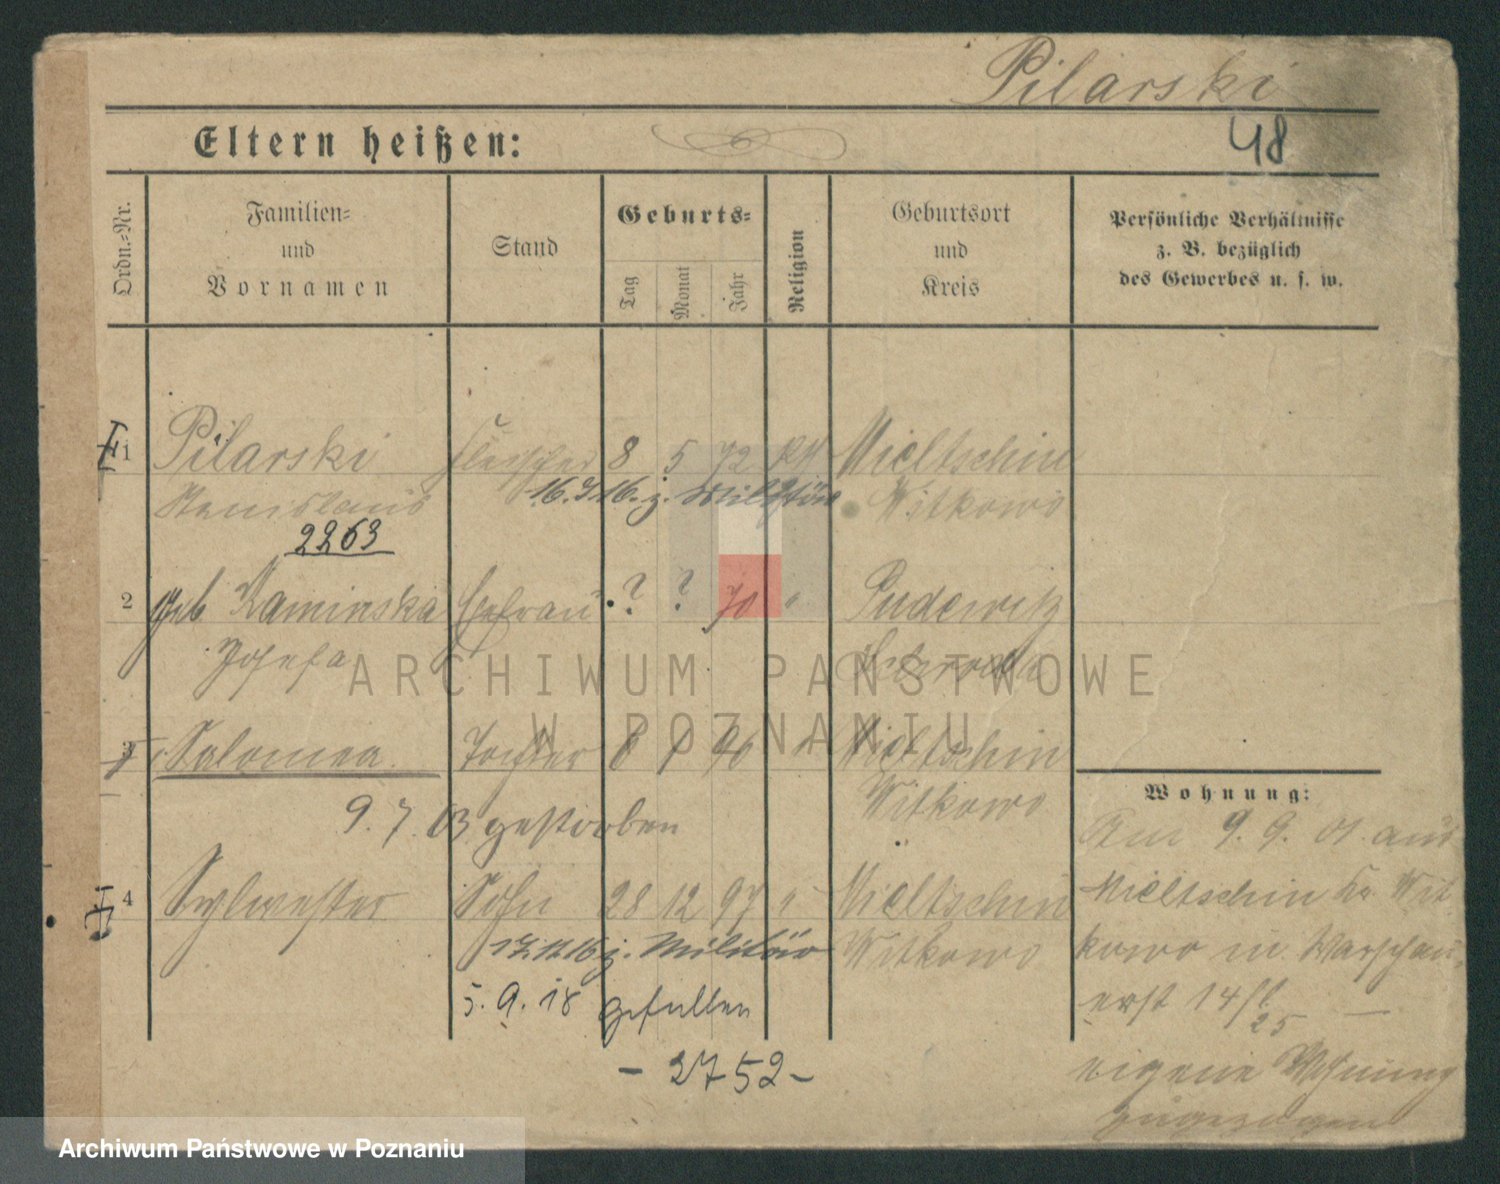 Pilarski
48
Eltern heißen:
Ordn.-Nr.
Familien-
und
Vornamen
Stand
Geburts-
Tag
Monat
Jahr
Religion
Geburtsort
und
Kreis
Persönliche Verhältnisse
z. B. bezüglich
des Gewerbes u. s. w.
1 Pilarski Fleischer 8 5 72 Mieltschin
Stanislaus 16. z. Militär Witkowo
2263
2 geb Kaminska Ehefrau ? ? 70 " Pudewitz
Josefa
3 Salomea. Tochter 8 1 " Mieltschin
Witkowo
9. 7. 03 gestorben
4 Sylwester Sohn 28 12 97 " Mieltschin
z. Militär Witkowo
5. 9. 18 gefallen
- 2752 -
Wohnung:
Am 9. 9. 01. aus
Mieltschin Kr. Wit-
kowo in Warschau-
erst 14
25
eigene Wohnung
zugezogen
ARCHIWUM PAŃSTWOWE
W POZNANIU
Archiwum Państwowe w Poznaniu